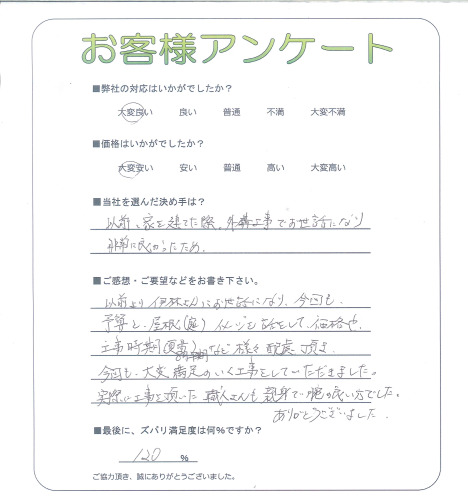 お客様アンケート
■弊社の対応はいかがでしたか？
大変良い 良い 普通 不満 大変不満
■価格はいかがでしたか？
大変安い 安い 普通 高い 大変高い
■当社を選んだ決め手は？
以前、家を建てた際、外構工事でお世話になり
非常に良かったため。
■ご感想・ご要望などをお書き下さい。
以前より さんにお世話になり、今回も、
予算と、屋根(庭) イメージを話をして、価格や、
工事時期 など様々配慮頂き
今回も、大変満足のいく工事をしていただきました。
実際に工事を頂いた職人さんも親身で 良い方でした。
ありがとうございました。
■最後に、ズバリ満足度は何%ですか？
120 %
ご協力頂き、誠にありがとうございました。